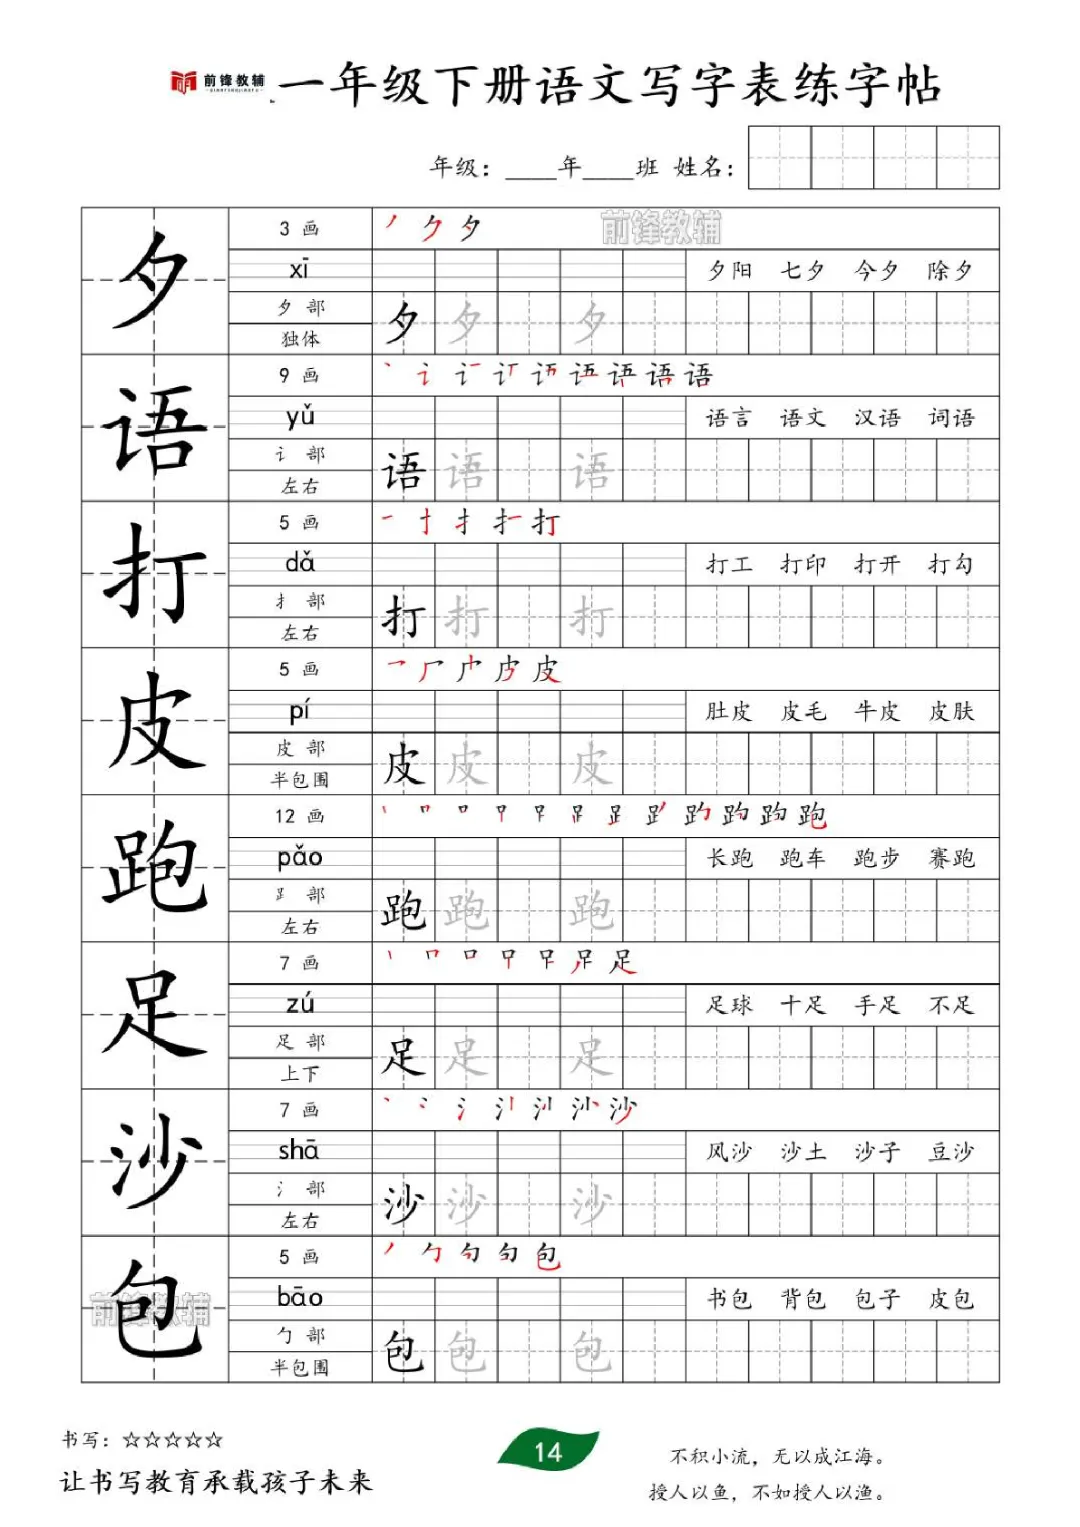 前锋教辅 一年级下册语文写字表练字帖
年级：____年____班 姓名：
前锋教辅
夕
3 画
xī
夕阳 七夕 今夕 除夕
夕 部
夕 夕 夕
独体
语
9 画
yǔ
语言 语文 汉语 词语
讠 部
语 语 语
左右
打
5 画
dǎ
打工 打印 打开 打勾
扌 部
打 打 打
左右
皮
5 画
pí
肚皮 皮毛 牛皮 皮肤
皮 部
皮 皮 皮
半包围
跑
12 画
pǎo
长跑 跑车 跑步 赛跑
⻊ 部
跑 跑 跑
左右
足
7 画
zú
足球 十足 手足 不足
足 部
足 足 足
上下
沙
7 画
shā
风沙 沙土 沙子 豆沙
氵 部
沙 沙 沙
左右
包
5 画
bāo
书包 背包 包子 皮包
前锋教辅
勹 部
包 包 包
半包围
书写：☆☆☆☆☆
让书写教育承载孩子未来
14
不积小流，无以成江海。
授人以鱼，不如授人以渔。